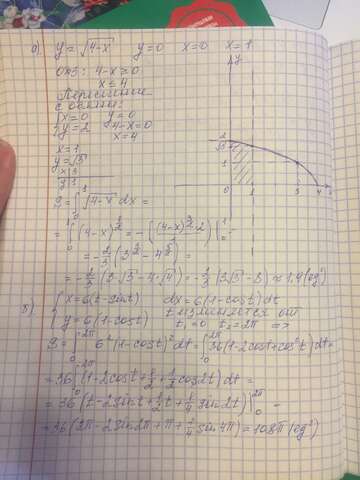 а) y = √(4-x)   y=0   x=0   x=1
ОНЗ: 4-x ≥ 0
x ≤ 4
Пересечение
с осями:
{ x=0   y=0
y=2   4-x=0
x=4
x=1
y=√3
x | 3
y | 1
y
2
√3
1
0 1 3 4 x
S = ∫₀¹ √(4-x) dx =
= ∫₀¹ (4-x)^(1/2) = -((4-x)^(3/2)·2)/3 |₀¹ =
= -2/3 (3^(3/2) - 4^(3/2)) =
= -2/3 (3·√3 - 4·√4) = -2/3 (3√3 - 8) ≈ 1,4 (ед²)
б) { x = 6(t-sint)   dx = 6(1-cost)dt
y = 6(1-cost)   t изменяется от
t₁=0   t₂=2π   =>
S = ∫₀^2π 6²(1-cost)² dt = ∫₀^2π 36(1-2cost+cos²t)dt =
= 36 ∫₀^2π (1-2cost+1/2+1/2cos2t)dt =
= 36 (t-2sint+1/2t+1/4sin2t) |₀^2π =
= 36(2π-2sin2π+π+1/4sin4π) = 108π (ед²)